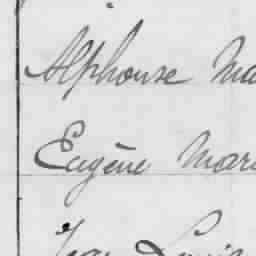 Alphonse Ma
Eugène Mari
Jean Louis